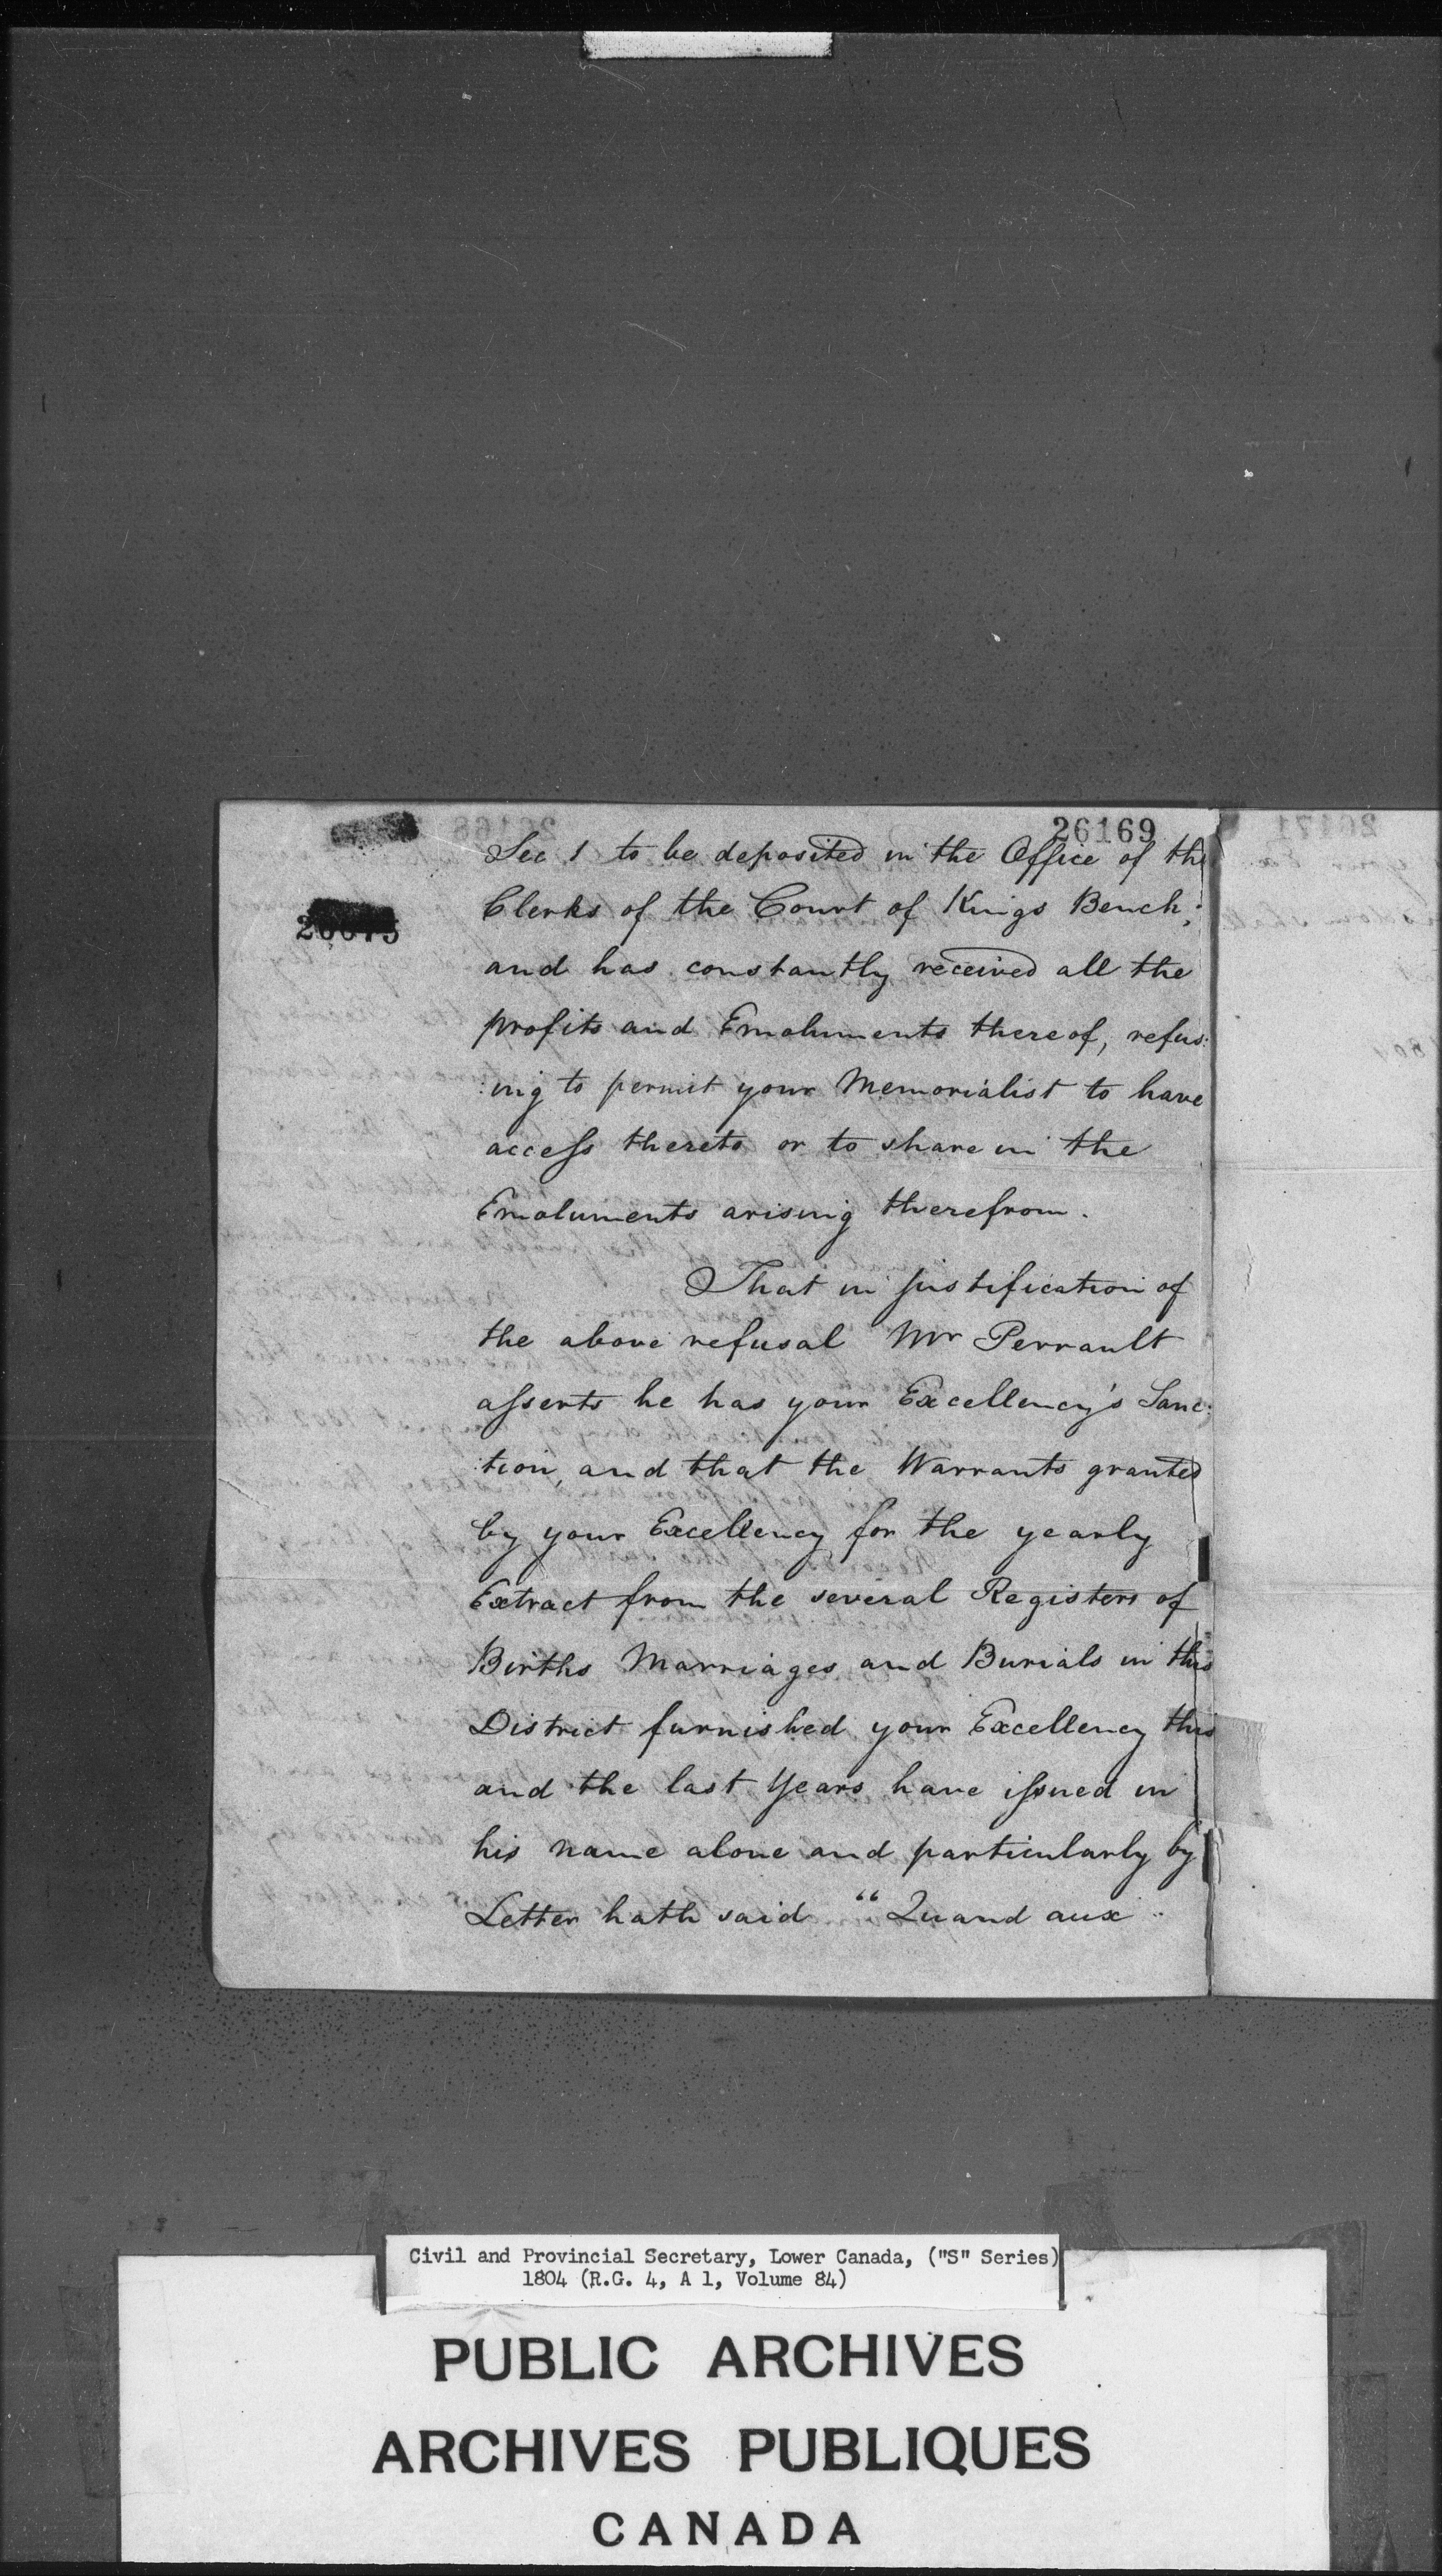 26169
Sec 1 to be deposited in the Office of the
Clerks of the Court of Kings Bench;
and has constantly received all the
profits and Emoluments thereof, refus:
:ing to permit your Memorialist to have
access thereto or to share in the
Emoluments arising therefrom.
That in justification of
the above refusal Mr Perrault
asserts he has your Excellency's Sanc:
:tion, and that the Warrants granted
by your Excellency for the yearly
Extract from the several Registers of
Births Marriages and Burials in this
District furnished your Excellency this
and the last Years have issued in
his name alone and particularly by
Letter hath said "Quand aux
Civil and Provincial Secretary, Lower Canada, ("S" Series)
1804 (R.G. 4, A 1, Volume 84)
PUBLIC ARCHIVES
ARCHIVES PUBLIQUES
CANADA